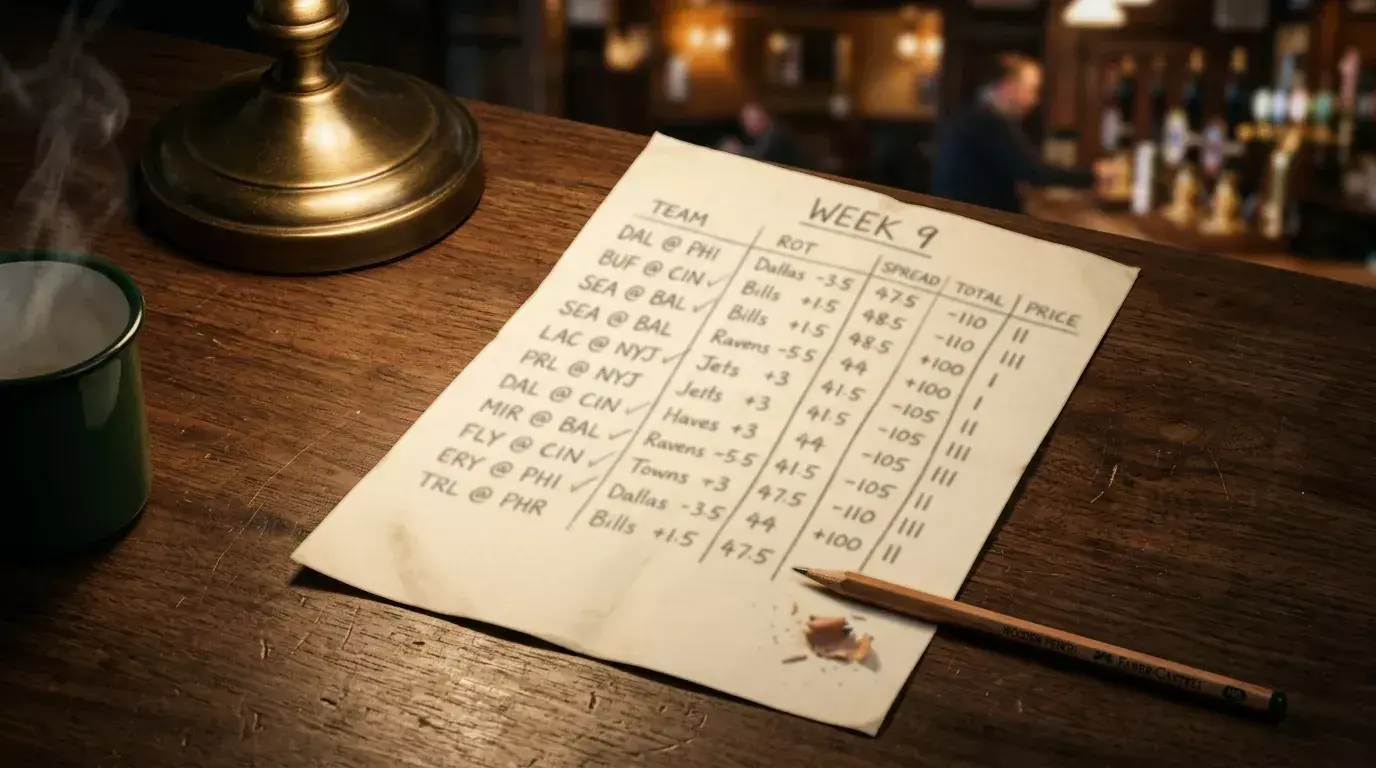 WEEK 9
TEAM ROT SPREAD TOTAL PRICE
DAL @ PHI Dallas -3.5 47.5 -110 II
BUF @ CIN ✓ Bills +1.5 48.5 -110 III
SEA @ BAL ✓ Bills +1.5 48.5 +100 I
SEA @ BAL Ravens -5.5 44 +100 I
LAC @ NYJ ✓ Jets +3 41.5 -105 II
PRL @ NYJ Jeits +3 41.5 -105 III
DAL @ CIN ✓ Haves +3 44 -105 III
MIR @ BAL ✓ Ravens -5.5 41.5 -105 II
FLY @ CIN ✓ Towns +3 47.5 -110 III
ERY @ PHI ✓ Dallas -3.5 44 +100 II
TRL @ PHR Bills +1.5 47.5
FABER-CASTELL